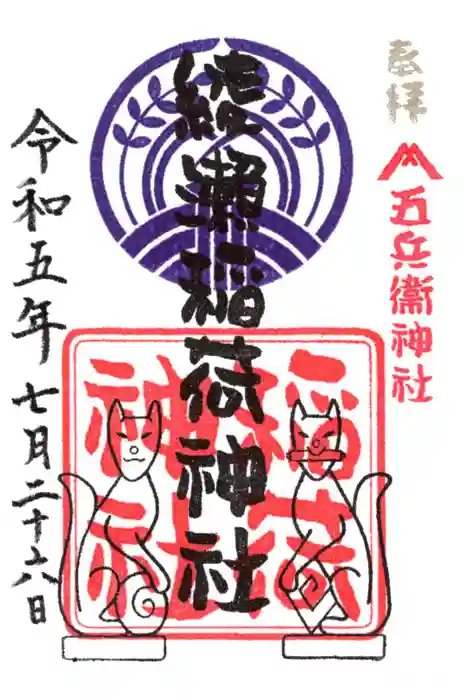 奉拝
五兵衛神社
綾瀬稲荷神社
稲荷
神社
令和五年七月二十六日